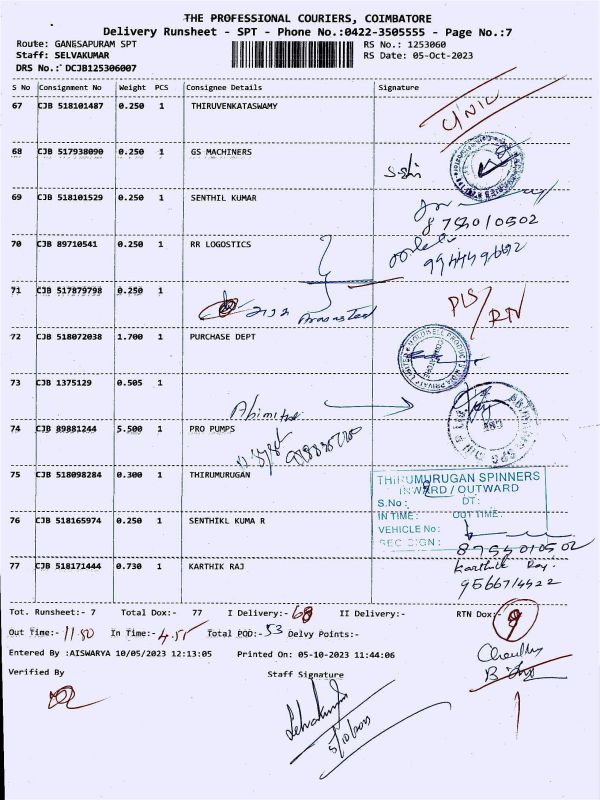 THE PROFESSIONAL COURIERS, COIMBATORE
Delivery Runsheet - SPT - Phone No.:0422-3505555 - Page No.:7
Route: GANESAPURAM SPT RS No.: 1253060
Staff: SELVAKUMAR RS Date: 05-Oct-2023
DRS No.: DCJB125306007
S No Consignment No Weight PCS Consignee Details Signature
67 CJB 518101487 0.250 1 THIRUVENKATASWAMY
68 CJB 517938090 0.250 1 GS MACHINERS
69 CJB 518101529 0.250 1 SENTHIL KUMAR
8754010502
70 CJB 89710541 0.250 1 RR LOGOSTICS
71 CJB 517879798 0.250 1
PLS/
RTN
72 CJB 518072038 1.700 1 PURCHASE DEPT
73 CJB 1375129 0.505 1
74 CJB 89881244 5.500 1 PRO PUMPS
75 CJB 518098284 0.300 1 THIRUMURUGAN
THIRUMURUGAN SPINNERS
INWARD / OUTWARD
S.No: DT:
IN TIME: OUT TIME:
VEHICLE No:
SEC SIGN:
76 CJB 518165974 0.250 1 SENTHIKL KUMA R
8754010502
77 CJB 518171444 0.730 1 KARTHIK RAJ
Karthik Raj
9566714922
Tot. Runsheet:- 7 Total Dox:- 77 I Delivery:- 68 II Delivery:- RTN Dox:- 9
Out Time:- 11.50 In Time:- 4.55 Total POD:- 53 Delvy Points:-
Entered By :AISWARYA 10/05/2023 12:13:05 Printed On: 05-10-2023 11:44:06
Verified By Staff Signature
Selvakumar
5/10/2023